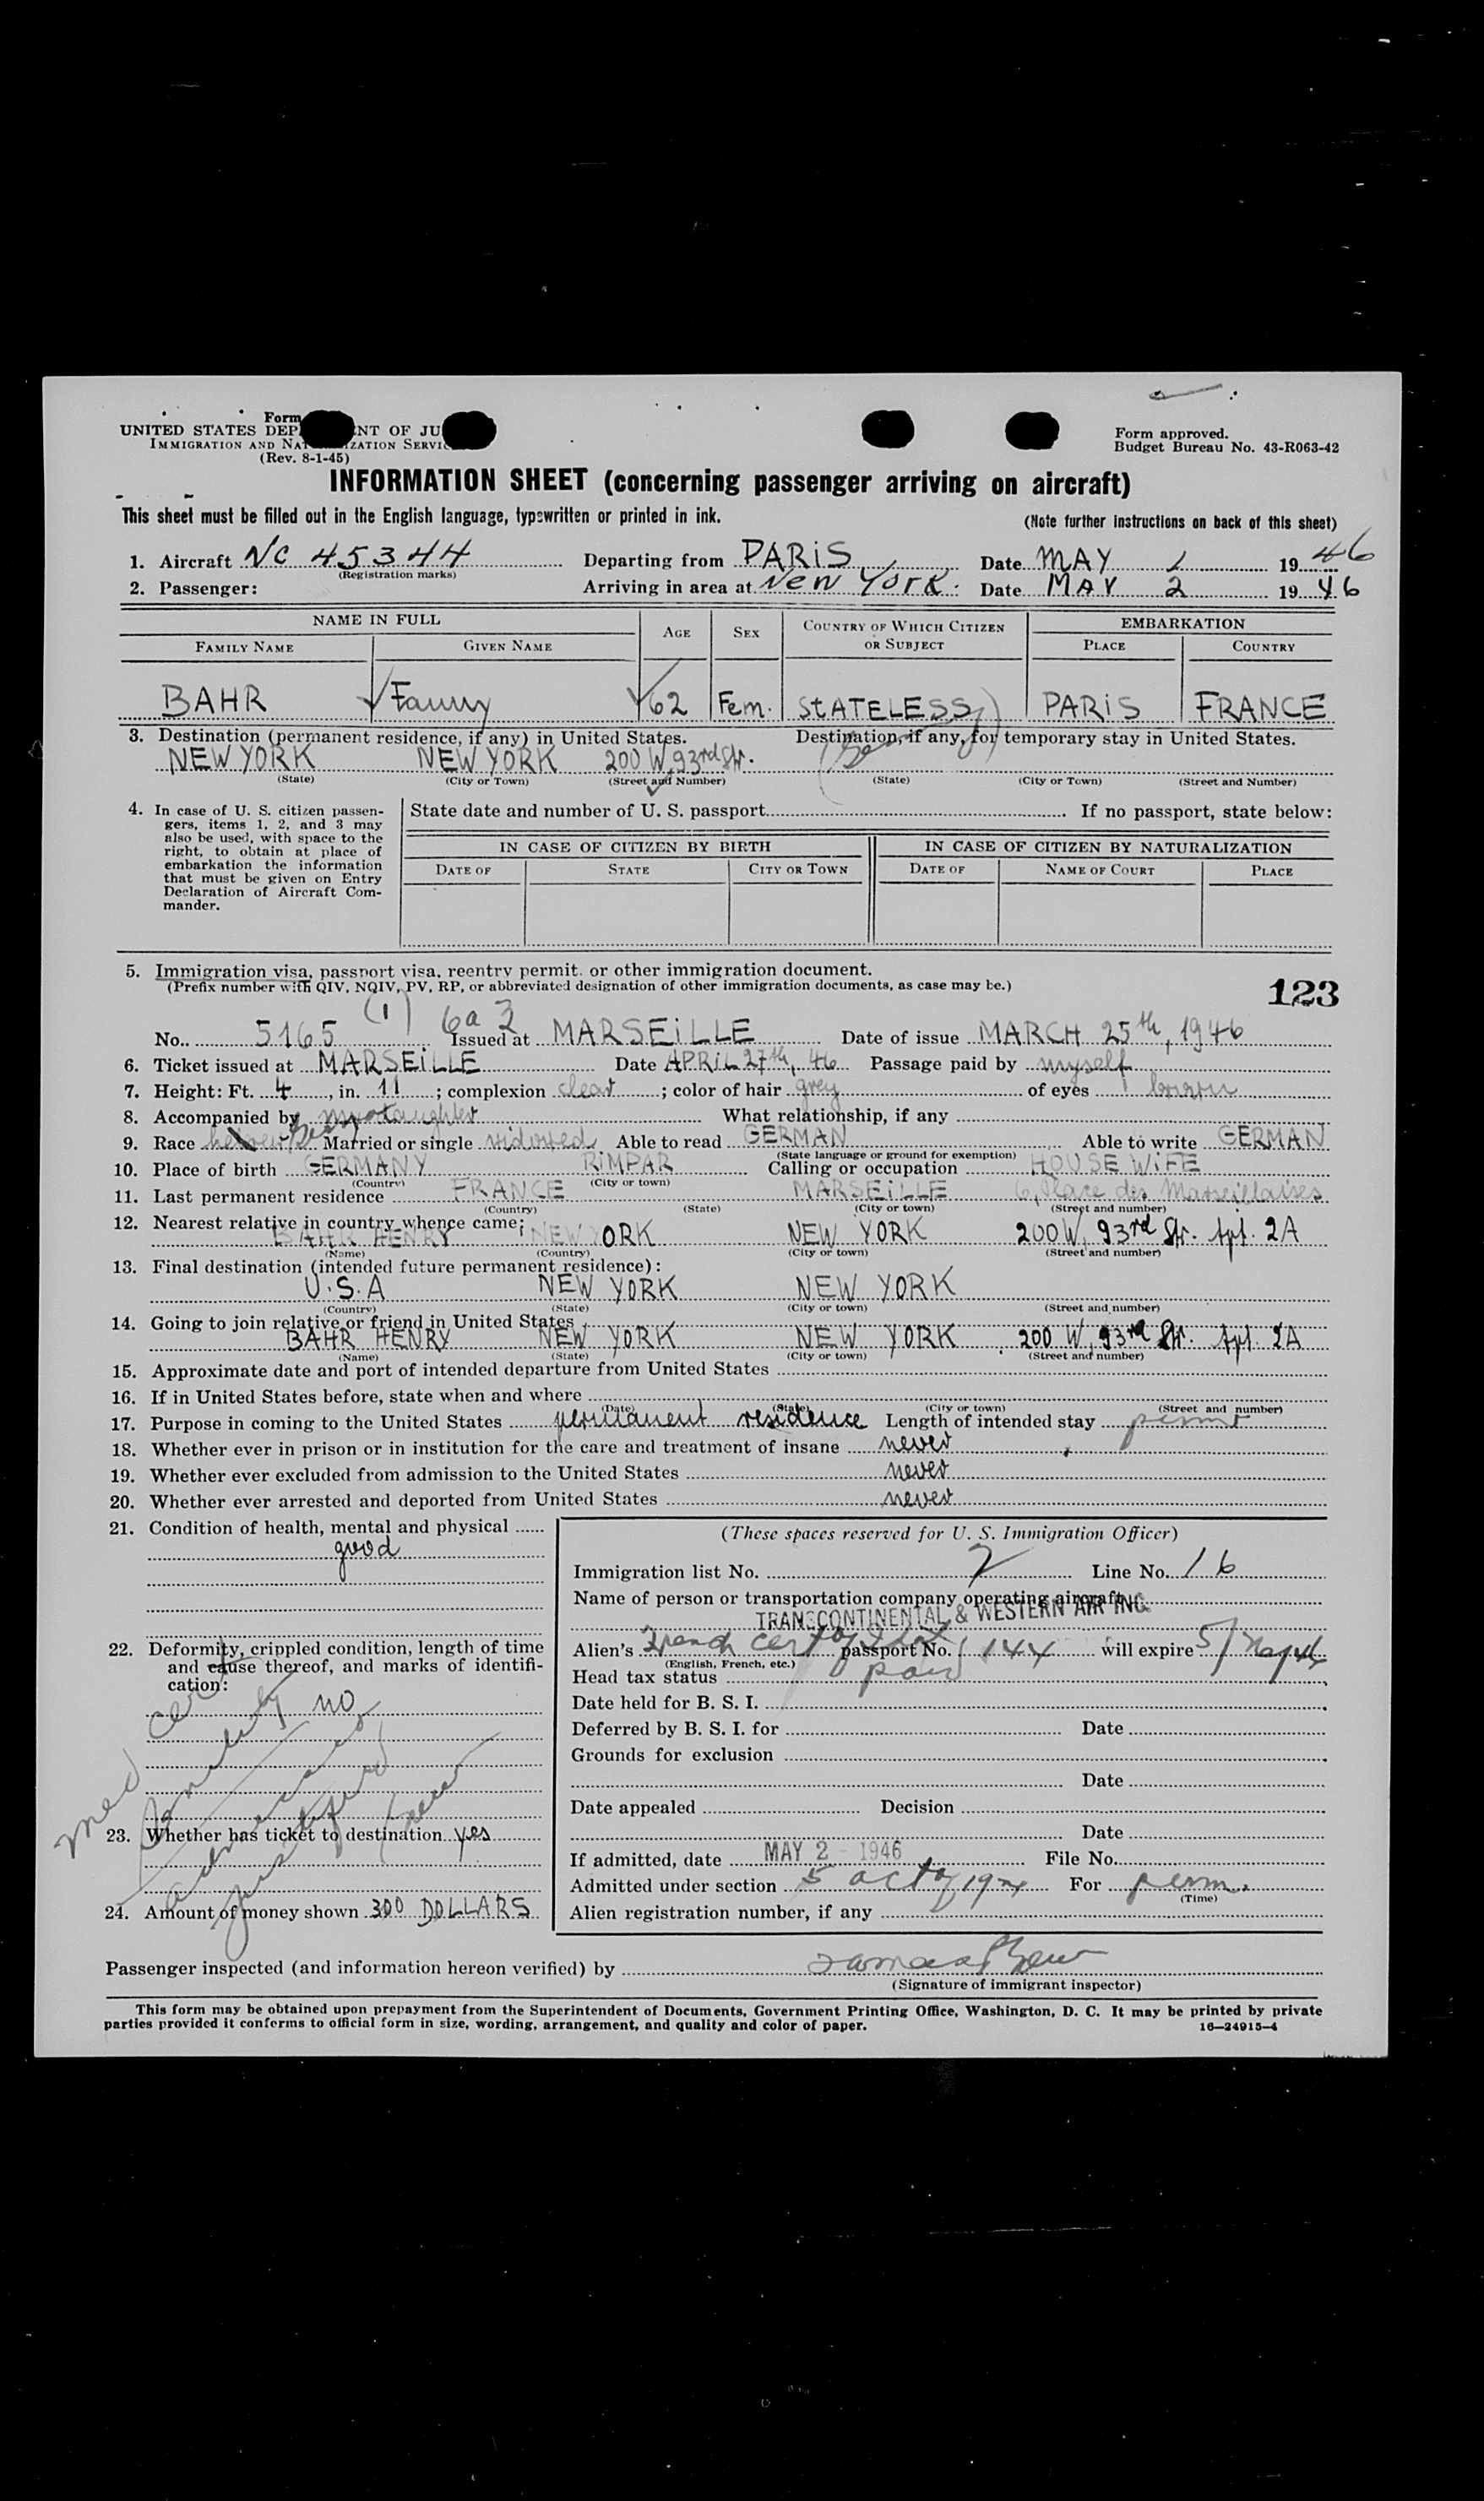 Form
UNITED STATES DEP NT OF JU
IMMIGRATION AND NAT IZATION SERVIC
(Rev. 8-1-45)
Form approved.
Budget Bureau No. 43-R063-42
INFORMATION SHEET (concerning passenger arriving on aircraft)
This sheet must be filled out in the English language, typewritten or printed in ink.
(Note further instructions on back of this sheet)
1. Aircraft NC 45344 Departing from PARIS Date MAY 1 1946
(Registration marks)
2. Passenger: Arriving in area at New York Date MAY 2 1946
NAME IN FULL AGE SEX COUNTRY OF WHICH CITIZEN OR SUBJECT EMBARKATION
FAMILY NAME GIVEN NAME PLACE COUNTRY
BAHR Fanny 62 Fem. STATELESS PARIS FRANCE
3. Destination (permanent residence, if any) in United States. Destination, if any, for temporary stay in United States.
NEW YORK NEW YORK 200 W, 93rd Str.
(State) (City or Town) (Street and Number) (State) (City or Town) (Street and Number)
4. In case of U. S. citizen passen-
gers, items 1, 2, and 3 may
also be used, with space to the
right, to obtain at place of
embarkation the information
that must be given on Entry
Declaration of Aircraft Com-
mander.
State date and number of U. S. passport If no passport, state below:
IN CASE OF CITIZEN BY BIRTH IN CASE OF CITIZEN BY NATURALIZATION
DATE OF STATE CITY OR TOWN DATE OF NAME OF COURT PLACE
5. Immigration visa, passport visa, reentry permit, or other immigration document.
(Prefix number with QIV, NQIV, PV, RP, or abbreviated designation of other immigration documents, as case may be.)
123
(1) 6a3
No. 5165 Issued at MARSEILLE Date of issue MARCH 25th, 1946
6. Ticket issued at MARSEILLE Date APRIL 27th, 46 Passage paid by myself
7. Height: Ft. 4, in. 11; complexion clear; color of hair grey of eyes brown
8. Accompanied by my daughter What relationship, if any
9. Race hebrew Married or single widowed Able to read GERMAN Able to write GERMAN
(State language or ground for exemption)
10. Place of birth GERMANY RIMPAR Calling or occupation HOUSE WIFE
(Country) (City or town)
11. Last permanent residence FRANCE MARSEILLE 6, Place des Marseillaises
(Country) (State) (City or town) (Street and number)
12. Nearest relative in country whence came:
BAHR HENRY NEW YORK NEW YORK 200 W, 93rd Str. Apt. 2A
(Name) (Country) (City or town) (Street and number)
13. Final destination (intended future permanent residence):
U.S.A NEW YORK NEW YORK
(Country) (State) (City or town) (Street and number)
14. Going to join relative or friend in United States
BAHR HENRY NEW YORK NEW YORK 200 W, 93rd Str. Apt. 2A
(Name) (State) (City or town) (Street and number)
15. Approximate date and port of intended departure from United States
16. If in United States before, state when and where
(Date) (State) (City or town) (Street and number)
17. Purpose in coming to the United States permanent residence Length of intended stay permt
18. Whether ever in prison or in institution for the care and treatment of insane never
19. Whether ever excluded from admission to the United States never
20. Whether ever arrested and deported from United States never
21. Condition of health, mental and physical
good
22. Deformity, crippled condition, length of time
and cause thereof, and marks of identifi-
cation:
no
med cert
23. Whether has ticket to destination yes
24. Amount of money shown 300 DOLLARS
(These spaces reserved for U. S. Immigration Officer)
Immigration list No. 2 Line No. 16
Name of person or transportation company operating aircraft
TRANSCONTINENTAL & WESTERN AIR INC.
Alien's French cert of Ident passport No. 144 will expire
(English, French, etc.)
Head tax status paid
Date held for B. S. I.
Deferred by B. S. I. for Date
Grounds for exclusion
Date
Date appealed Decision
Date
If admitted, date MAY 2 - 1946 File No.
Admitted under section 5 act of 1924 For perm.
(Time)
Alien registration number, if any
Passenger inspected (and information hereon verified) by
(Signature of immigrant inspector)
This form may be obtained upon prepayment from the Superintendent of Documents, Government Printing Office, Washington, D. C. It may be printed by private
parties provided it conforms to official form in size, wording, arrangement, and quality and color of paper.
16—24915-4